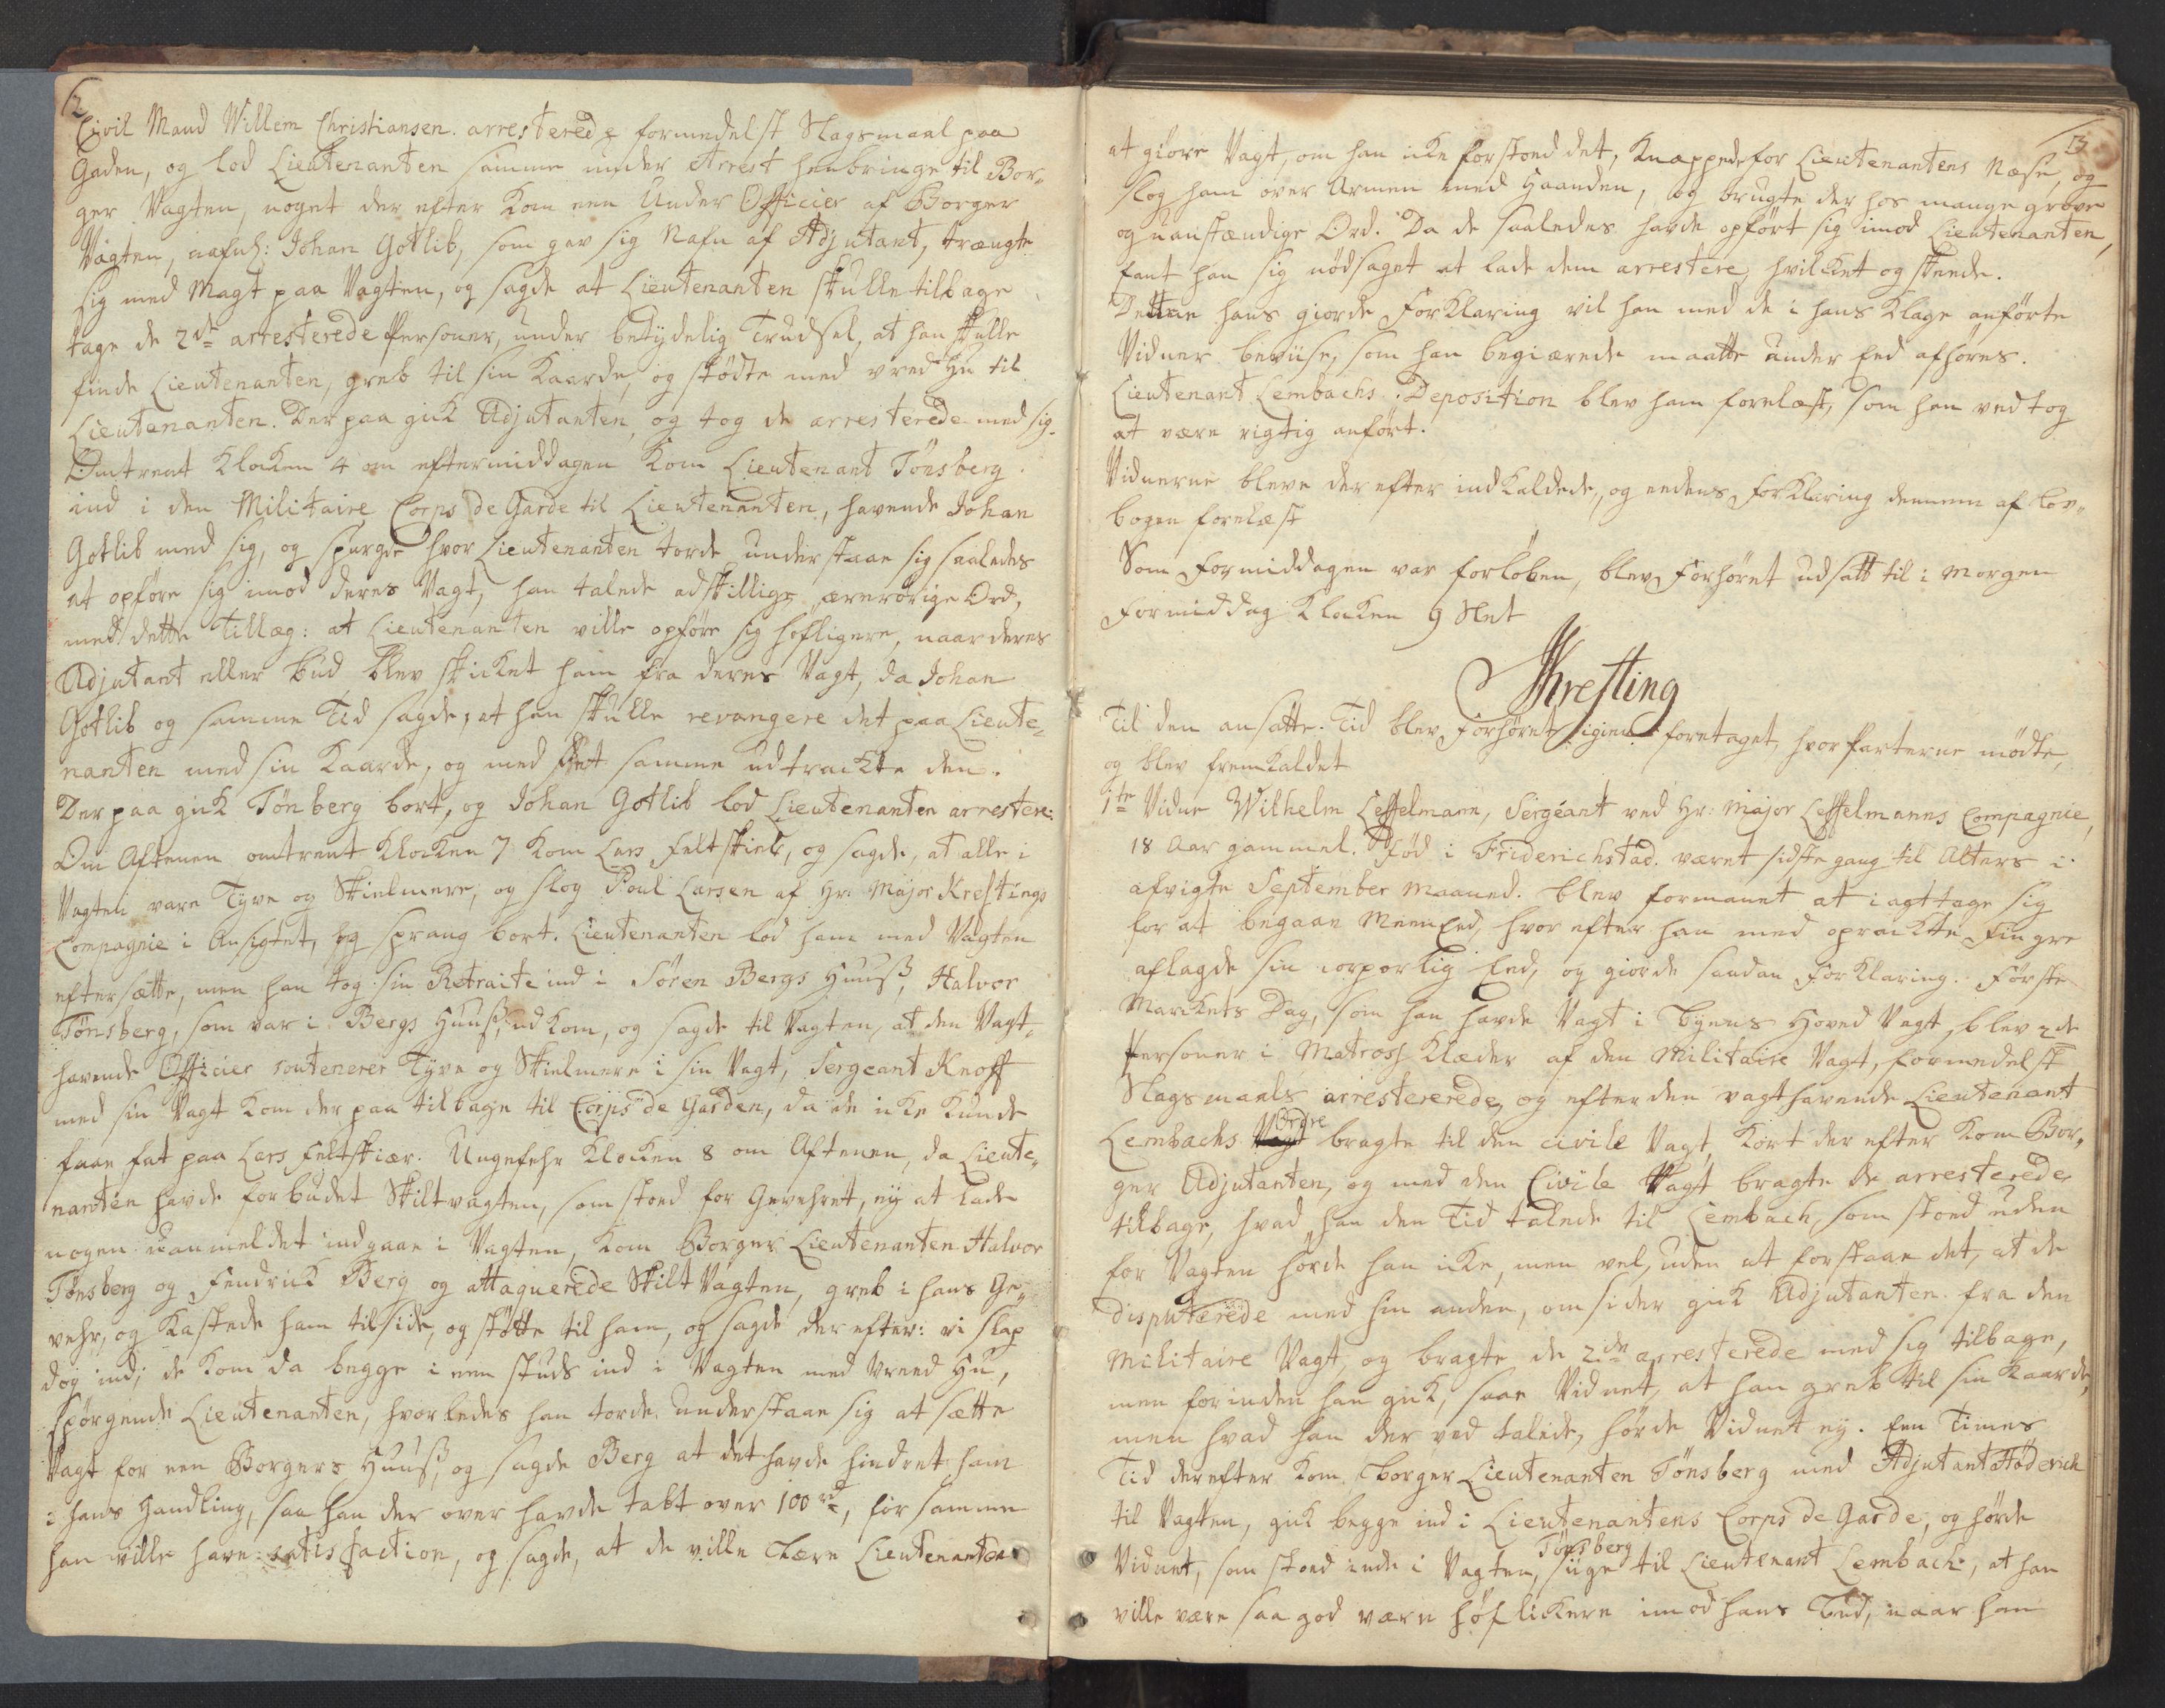 12
Civil Mand Willem Christiansen. arresterede formedelst Slagsmaal paa
Gaden, og lod Lieutenanten samme under Arrest henbringe til Bor„
ger Vagten, noget der efter kom een Under Officier af Borger
Vagten, nafnl: Johan Gotlib, som gav sig Nafn af Adjutant, trængte
sig med Magt paa Vagten, og sagde at Lieutenanten skulle tilbage
tage de 2de arresterede Personer, under betydelig Trudsel, at han skulle
finde Lieutenanten, greb til sin Kaarde, og stødte med vred Hu til
Lieutenanten. Derpaa gick Adjutanten, og tog de arresterede med sig.
Omtrent Klocken 4 om eftermiddagen kom Lieutenant Tönsberg
ind i den Militaire Corps de Garde til Lieutenanten, havende Johan
Gotlib med sig, og spurgde hvor Lieutenanten torde understaae sig saaledes
at opföre sig imod deres Vagt, han talede adskillige ærerörige Ord,
med dette Tillæg: at Lieutenanten ville opföre sig höfligere, naar deres
Adjutant eller bud blev skicket ham fra deres Vagt, da Johan
Gotlib og samme Tid sagde, at han skulle revangere det paa Lieute„
nanten med sin Kaarde, og med det samme udtrackte den.
Der paa gick Tönberg bort, og Johan Gotlib lod Lieutenanten arrestere.
Om Aftenen omtrent Klocken 7 kom Lars Feltskier, og sagde, at alle i
Vagten vare Tyve og Skielmere, og slog Poul Larsen af Hr. Major Krestings
Compagnie i Ansigtet, og sprang bort. Lieutenanten lod ham med Vagten
eftersætte, men han tog sin Retraite ind i Sören Bergs Huuss, Halvor
Tönsberg, som var i Bergs Huuss, udkom, og sagde til Vagten, at den Vagt„
havende Officier soutenerer Tyve og Skielmere i sin Vagt, Sergeant Knoff
med sin Vagt kom der paa tilbage til Corps de Garden, da de icke kunde
faae fat paa Lars Feltskiær. Ungefehr Klocken 8 om Aftenen, da Lieute„
nanten havde forbudet Skiltvagten, som stoed for Gevehret, ey at lade
nogen uanmeldet indgaae i Vagten, kom Borger Lieutenanten Halvor
Tönsberg og Fendrick Berg og attaquerede Skilt Vagten, greb i hans Ge„
vehr, og kastede ham tilside, og stötte til ham, og sagde der efter: vi slap
dog ind; de kom da begge i een studs ind i Vagten med Vreed Hu,
spörgende Lieutenanten, hvorledes han torde understaae sig at sætte
Vagt for een Borgers Huuss, og sagde Berg at det havde hindret ham
i hans Handling, saa han der over havde tabt over 100 rd, for samme
han ville have satisfaction, og sagde, at de ville Lære Lieutenanten
13
at giöre Vagt, om han icke forstoed det, knappede for Lieutenantens Næse, og
slog ham over Armen med Haanden, og brugte der hos mange grove
og uanstændige Ord. Da de saaledes havde opfört sig imod Lieutenanten,
fant han sig nödsaget at lade dem arrestere, hvilcket og skeede.
Denne hans giorde Forklaring vil han med de i hans Klage anförte
Vidner beviise, som han begiærede maatte under Eed afhöres.
Lieutenant Lembachs Deposition blev ham forelæst, som han vedtog
at være rigtig anfört.
Vidnerne bleve der efter indkaldede, og eedens Forklaring dennem af Lov„
bogen forelæst
Som Formiddagen var forlöben, blev Forhöret udsatt til i Morgen
Formiddag Klocken 9 Slet
Kresting
Til den ansatte Tid blev Forhöret igien foretaget, hvor Parterne mödte,
og blev fremkaldet
1te Vidne Wilhelm Leffelmann, Sergeant ved Hr: Major Leffelmanns Compagnie,
18 Aar gammel. Föd i Friderichstad. været sidste gang til Alters i
afvigte September Maaned. blev formanet at iagttage sig
for at begaae MeenEed, hvor efter han med oprackte Fingre
aflagde sin corporlig Eed, og giorde saadan Forklaring. Förste
Marckets Dag, som han havde Vagt i Byens Hoved Vagt, blev 2de
Personer i Matross Klæder af den Militaire Vagt, formedelst
Slagsmaals arrestererede, og efter den vagthavende Lieutenant
Lembachs Vagt Ordre bragte til den civile Vagt, kort der efter kom Bor„
ger Adjutanten, og med den Civile Vagt bragte de arresterede
tilbage, hvad han den Tid talede til Lembach, som stoed uden
for Vagten hörde han icke, men vel, uden at forstaae det, at de
disputerede med hin anden, omsider gick Adjutanten fra den
Militaire Vagt, og bragte de 2de arresterede med sig tilbage,
men forinden han gick, saae Vidnet, at han greb til sin Kaarde,
men hvad han der ved talede, hörde Vidnet ey. Een Times
Tid derefter kom Borger Lieutenanten Tönsberg med Adjutant Höderick
til Vagten, gick begge ind i Lieutenantens Corps de Garde, og hörde
Vidnet, som stoed inde i Vagten, Tönsberg siige til Lieutenant Lembach, at han
ville være saa god være höflickere imod hans Bud, naar han